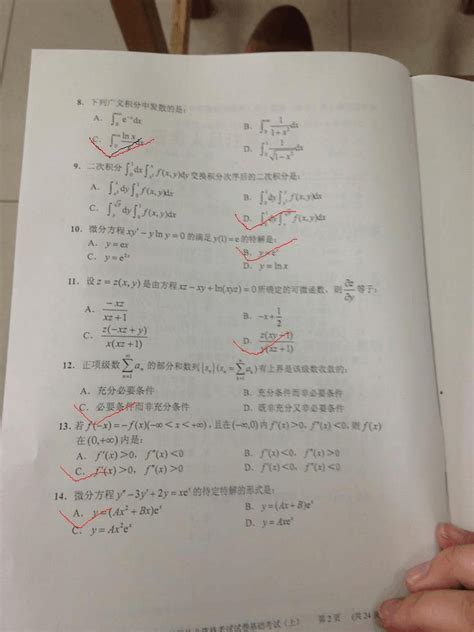 8. 下列广义积分中发散的是:
A. ∫₀^{+∞} e⁻ˣdx
B. ∫₀^{+∞} 1/(1+x²) dx
C. ∫ ln x/x dx
D. ∫₀¹ 1/√(1-x²) dx
9. 二次积分 ∫₀¹dx∫ f(x,y)dy 交换积分次序后的二次积分是:
A. ∫ dy∫ f(x,y)dx
B. ∫₀¹dy∫ f(x,y)dx
C. ∫ dy∫ f(x,y)dx
D. ∫₀¹dy∫ f(x,y)dx
10. 微分方程 xy′-y ln y=0 的满足 y(1)=e 的特解是:
A. y=ex
B. y=eˣ
C. y=e²ˣ
D. y=ln x
11. 设 z=z(x,y) 是由方程 xz-xy+ln(xyz)=0 所确定的可微函数, 则 ∂z/∂y 等于:
A. -xz/(xz+1)
B. -x+1/2
C. z(-xz+y)/(x(xz+1))
D. z(xy-1)/(y(xz+1))
12. 正项级数 ∑aₙ 的部分和数列{sₙ}(sₙ=∑aᵢ)有上界是该级数收敛的:
A. 充分必要条件
B. 充分条件而非必要条件
C. 必要条件而非充分条件
D. 既非充分又非必要条件
13. 若 f(-x)=-f(x)(-∞<x<+∞), 且在(-∞,0)内 f′(x)>0, f″(x)<0, 则 f(x)
在(0,+∞)内是:
A. f′(x)>0, f″(x)<0
B. f′(x)<0, f″(x)>0
C. f′(x)>0, f″(x)>0
D. f′(x)<0, f″(x)<0
14. 微分方程 y″-3y′+2y=xeˣ 的待定特解的形式是:
A. y=(Ax²+Bx)eˣ
B. y=(Ax+B)eˣ
C. y=Ax²eˣ
D. y=Axeˣ
资格考试试卷基础考试(上) 第2页 (共24